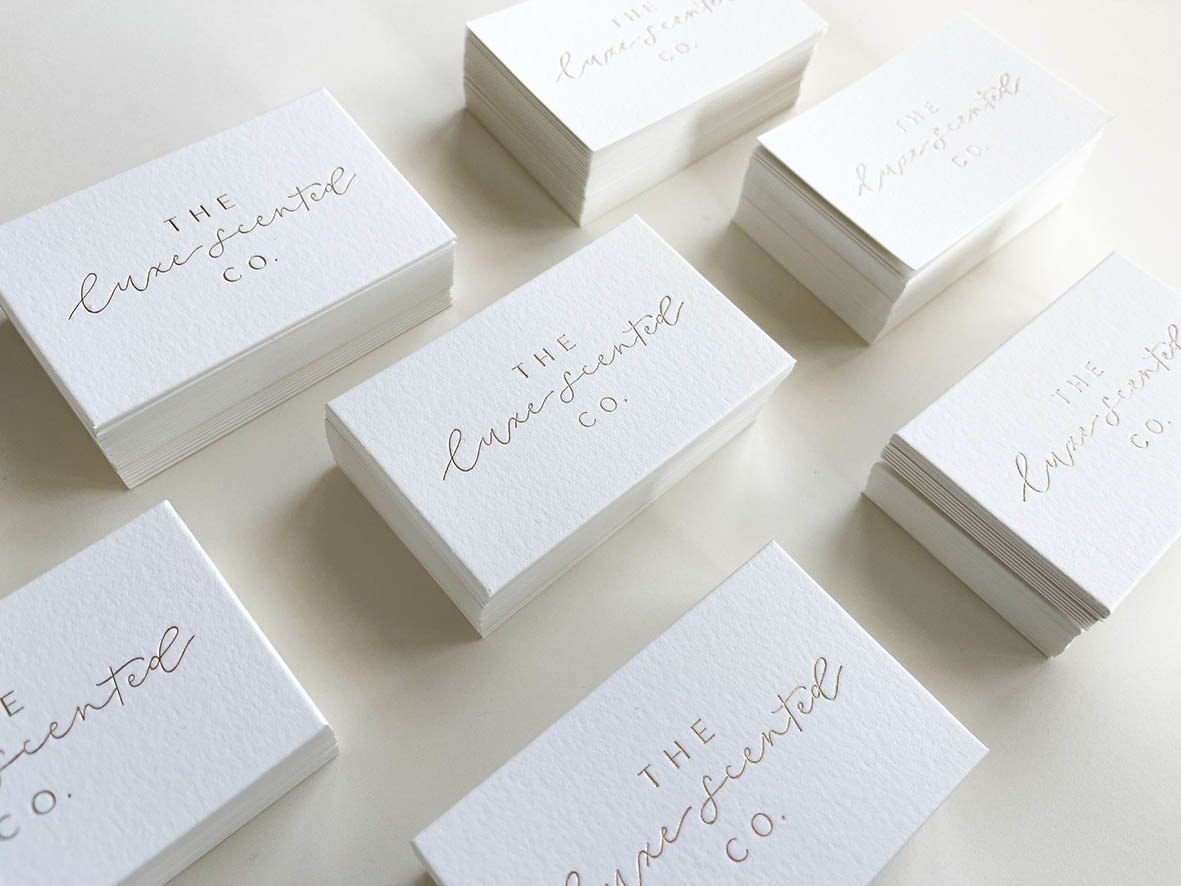 THE
luxe scented
CO.
THE
luxe scented
CO.
THE
luxe scented
CO.
THE
luxe scented
CO.
THE
luxe scented
CO.
scented
CO.
THE
luxe scented
CO.